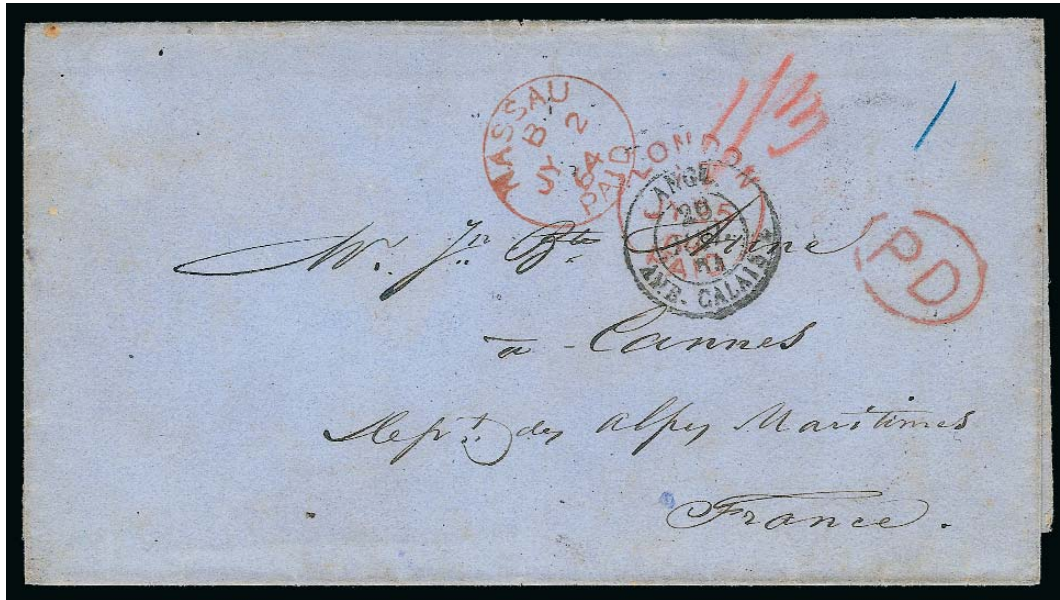 NASSAU
B
JY 2
64
PAID
LONDON
PAID
ANGL.
AMB. CALAIS
PD
Mr. Jn. Bte.
à Cannes
Dept. des Alpes Maritimes
France.